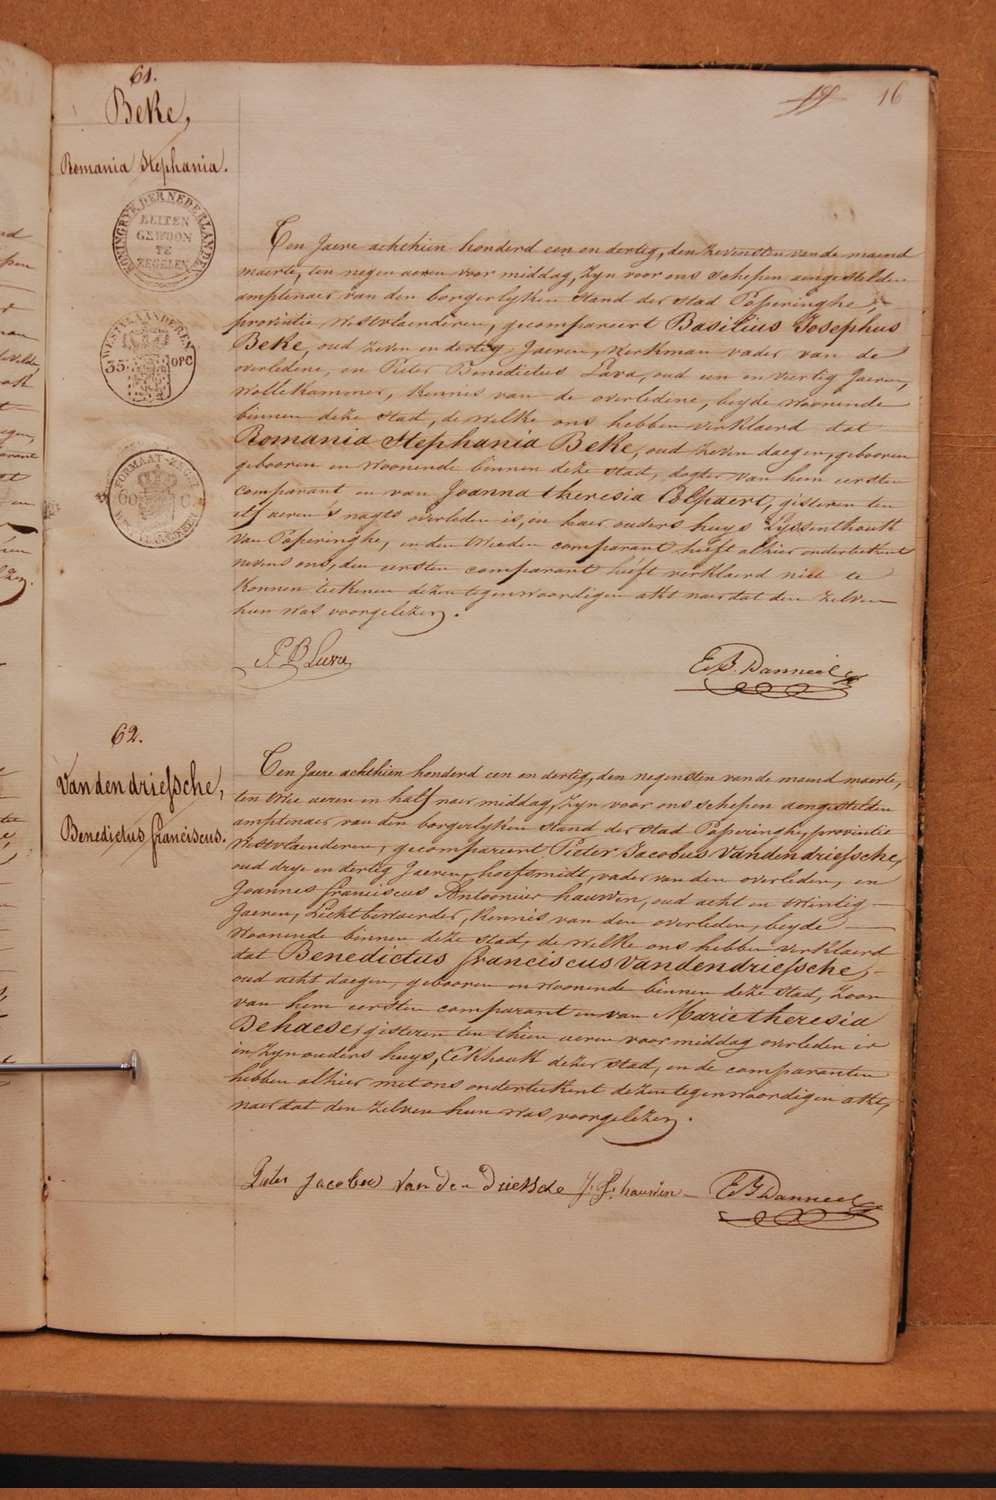 16
61.
Beke,
Romania Stephania.
KONINGRYK DER NEDERLANDEN
BUITEN
GEWOON
TE
ZEGELEN
WESTVLAANDEREN
35 OPC
FORMAAT-ZEGEL
60 C
Ten Jaere achthien honderd een en dertig, den zevensten van de maend
maerte, ten negen ueren voor middag, Zyn voor ons schepen aengestelden
amptenaer van den borgerlyken stand der stad Poperinghe,
provintie Westvlaenderen, gecompareert Basilius Josephus
Beke, oud zeven en dertig Jaeren, Werkman vader van de
overledene, en Pieter Benedictus Lava, oud een en viertig Jaeren,
Wollekammer, Kennis van de overledene, beyde Woonende
binnen deze stad, de welke ons hebben verklaerd dat
Romania Stephania Beke, oud zeven daegen, gebooren
gebooren en Woonende binnen deze stad, dogter van hem eersten
comparant en van Joanna theresia Colpaert, gisteren ten
elf ueren 's nagts overleden is, in haer ouders huys Lyssenthouk
van Poperinghe, en den tweeden comparant heeft alhier onderteekent
nevens ons, den eersten comparant heeft verklaerd niet te
Konnen teekenen dezen tegenwoordigen akt naer dat den zelven
hun was voorgelezen.
P. B Lava
E. B. Danneel
62.
Vandendriessche,
Benedictus franciscus.
Ten Jaere achthien honderd een en dertig, den negensten van de maend maerte,
ten twee ueren en half naer middag, Zyn voor ons schepen aengestelden
amptenaer van den borgerlyken stand der stad Poperinghe, provintie
Westvlaenderen, gecompareert Pieter Jacobus Vandendriessche,
oud drye en dertig Jaeren, hoefsmidt, vader van den overleden, en
Joannes franciscus Antoonius hauwen, oud acht en twintig
Jaeren, Lichtbewaerder, Kennis van den overleden, beyde
Woonende binnen deze stad, de welke ons hebben verklaerd
dat Benedictus franciscus Vandendriessche,
oud acht daegen, gebooren en woonende binnen deze stad, Zoon
van hem eersten comparant en van Marie theresia
Dehaese, gisteren ten thien ueren voormiddag overleden is
in zyn ouders huys, Eekhoutk dezer stad, en de comparanten
hebben alhier met ons onderteekent dezen tegenwoordigen akt,
naer dat den zelven hun was voorgelezen.
Pieter Jacobus Van Den Driessche J. F. hauwen E B Danneel